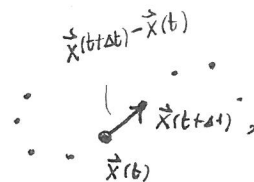 x⃗(t+Δt) - x⃗(t)
x⃗(t+Δt)
x⃗(t)